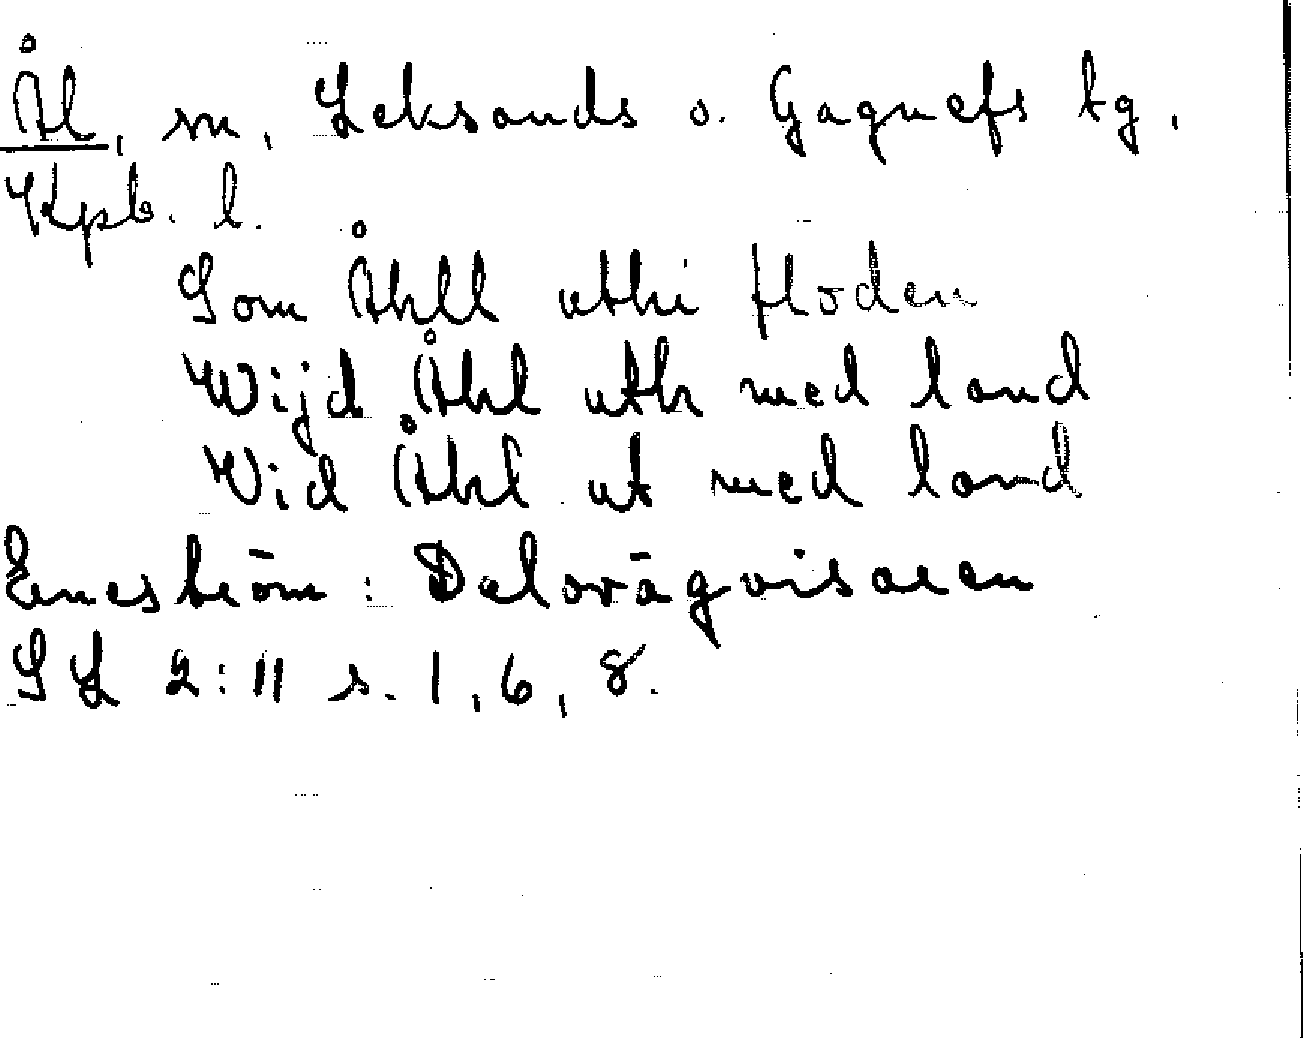 Ål, sn, Leksands o. Gagnefs tg.
Kpb. l.
Som Åhll uthi floden
Wijd Åhl uth med land
Vid Åhl ut med land
Eneström: Dalavägvisaren
SL 2:11 s. 1, 6, 8.